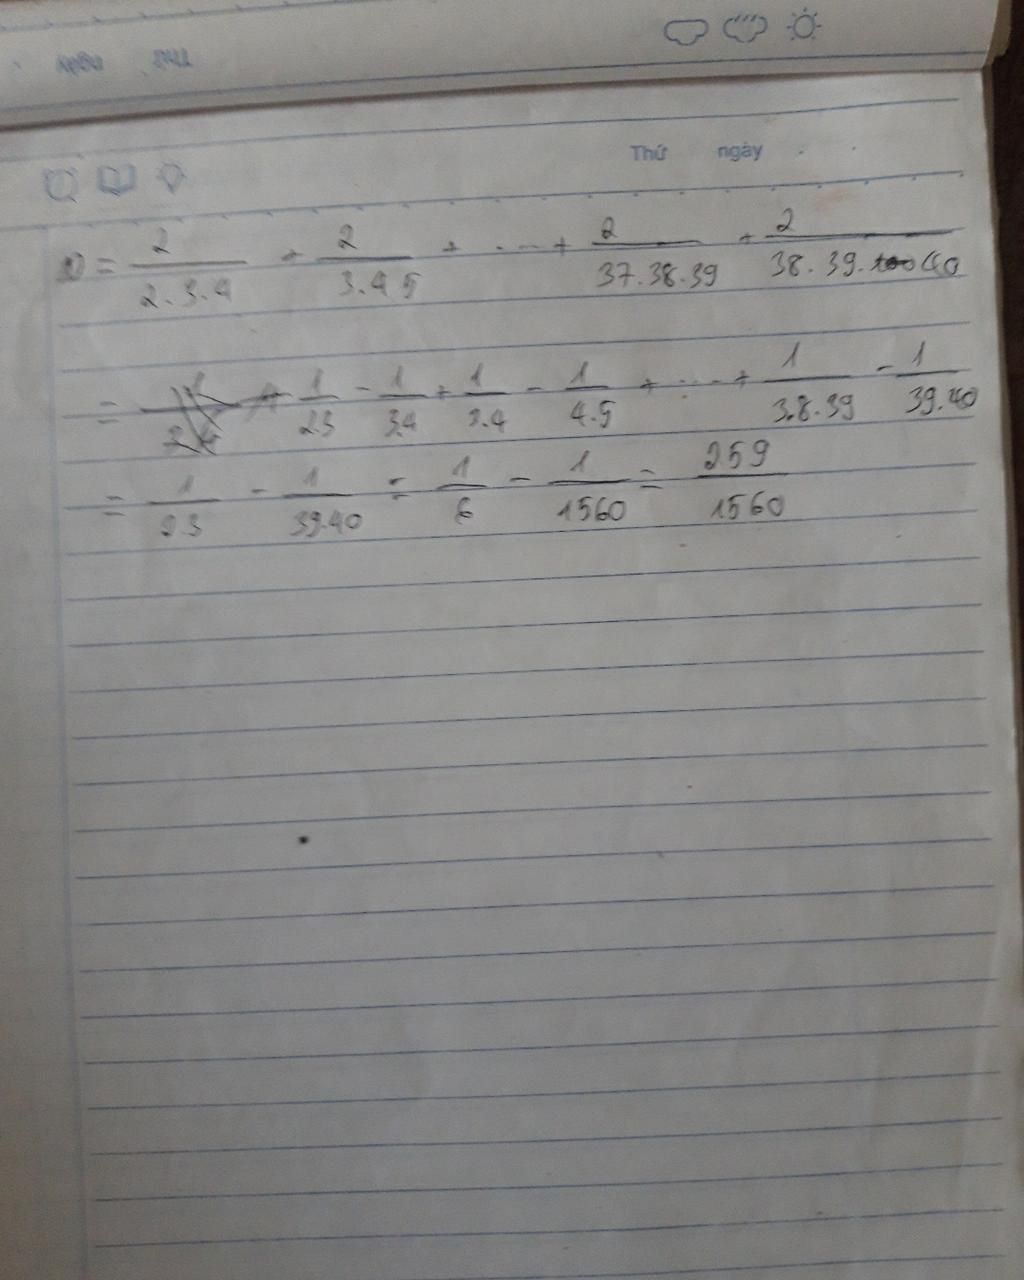 Thứ ngày
D = 2/2.3.4 + 2/3.4.5 + ... + 2/37.38.39 + 2/38.39.40
= 1/2.3 - 1/3.4 + 1/3.4 - 1/4.5 + ... + 1/3.8.39 - 1/39.40
= 1/2.3 - 1/39.40 = 1/6 - 1/1560 = 259/1560